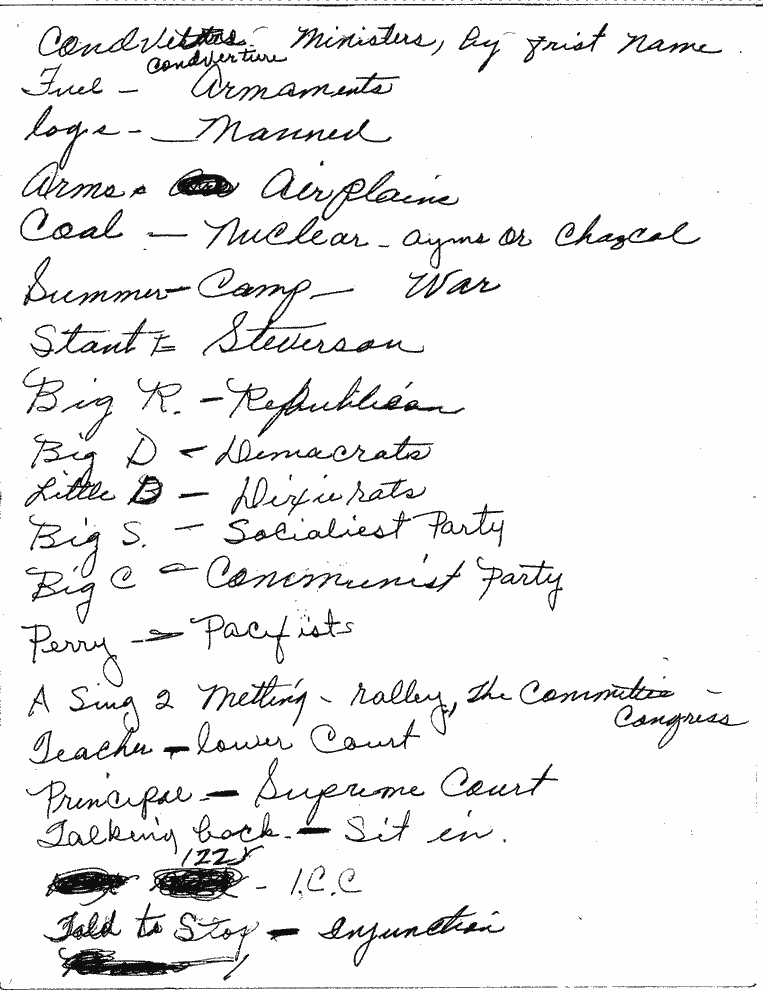 Condvetters - Ministers, by frist name
condverture
Fuel - Armaments
logs - Manned
Arms - Airplains
Coal - Nuclear - ayms or Chazcol
Summer Camp - War
Stant E Steverson
Big R. - Republican
Big D - Demacrats
Little B - Dixierats
Big S. - Socialiest Party
Big C - Communist Party
Perry - Pacifists
A Sing 2 Metting - ralley, the Committie -
Congress
Teacher - lower Court
Principal - Supreme Court
Talking back - Sit in.
122x
- I.C.C
Told to Stop - Injunction